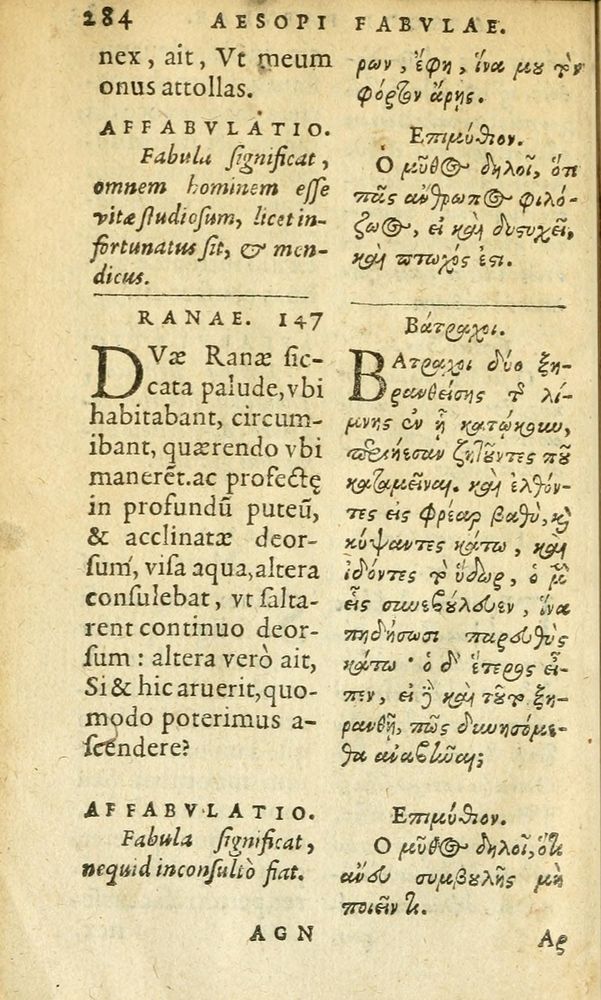 284 AESOPI FABVLAE.
nex, ait, Vt meum
onus attollas.
AFFABVLATIO.
Fabula ſignificat,
omnem hominem eſſe
vitæ ſtudioſum, licet in-
fortunatus ſit, & men-
dicus.
RANAE. 147
DVæ Ranæ ſic-
cata palude, vbi
habitabant, circum-
ibant, quærendo vbi
manerēt. ac profectę
in profundū puteū,
& acclinatæ deor-
ſum, viſa aqua, altera
conſulebat, vt ſalta-
rent continuo deor-
ſum : altera verò ait,
Si & hic aruerit, quo-
modo poterimus a-
ſcendere?
AFFABVLATIO.
Fabula ſignificat,
nequid inconſultò fiat.
AGN
ρων, ἔφη, ἵνα μου τὸν
φόρτον ἄρῃς.
Επιμύθιον.
Ο μῦθος δηλοῖ, ὅτι
πᾶς ἄνθρωπος φιλό-
ζωος, εἰ καὶ δυςυχεῖ,
καὶ πτωχός ἐςι.
Βάτραχοι.
ΒΑτραχοι δύο ξη-
ρανθείσης τῆς λί-
μνης ἐν ᾗ κατῴκουν,
περιῄεσαν ζητοῦντες ποῦ
καταμεῖναι. καὶ ἐλθόν-
τες εἰς φρέαρ βαθὺ, καὶ
κύψαντες κάτω, καὶ
ἰδόντες τὸ ὕδωρ, ὁ μὲν
εἷς συνεβούλευεν, ἵνα
πηδήσωσι παρευθὺς
κάτω· ὁ δ' ἕτερος εἶ-
πεν, εἰ δὲ καὶ τοῦτο ξη-
ρανθῇ, πῶς δυνησόμε-
θα ἀναβῶαι;
Επιμύθιον.
Ο μῦθος δηλοῖ, ὅτι
ἄνευ συμβουλῆς μὴ
ποιεῖν τι.
Αρ